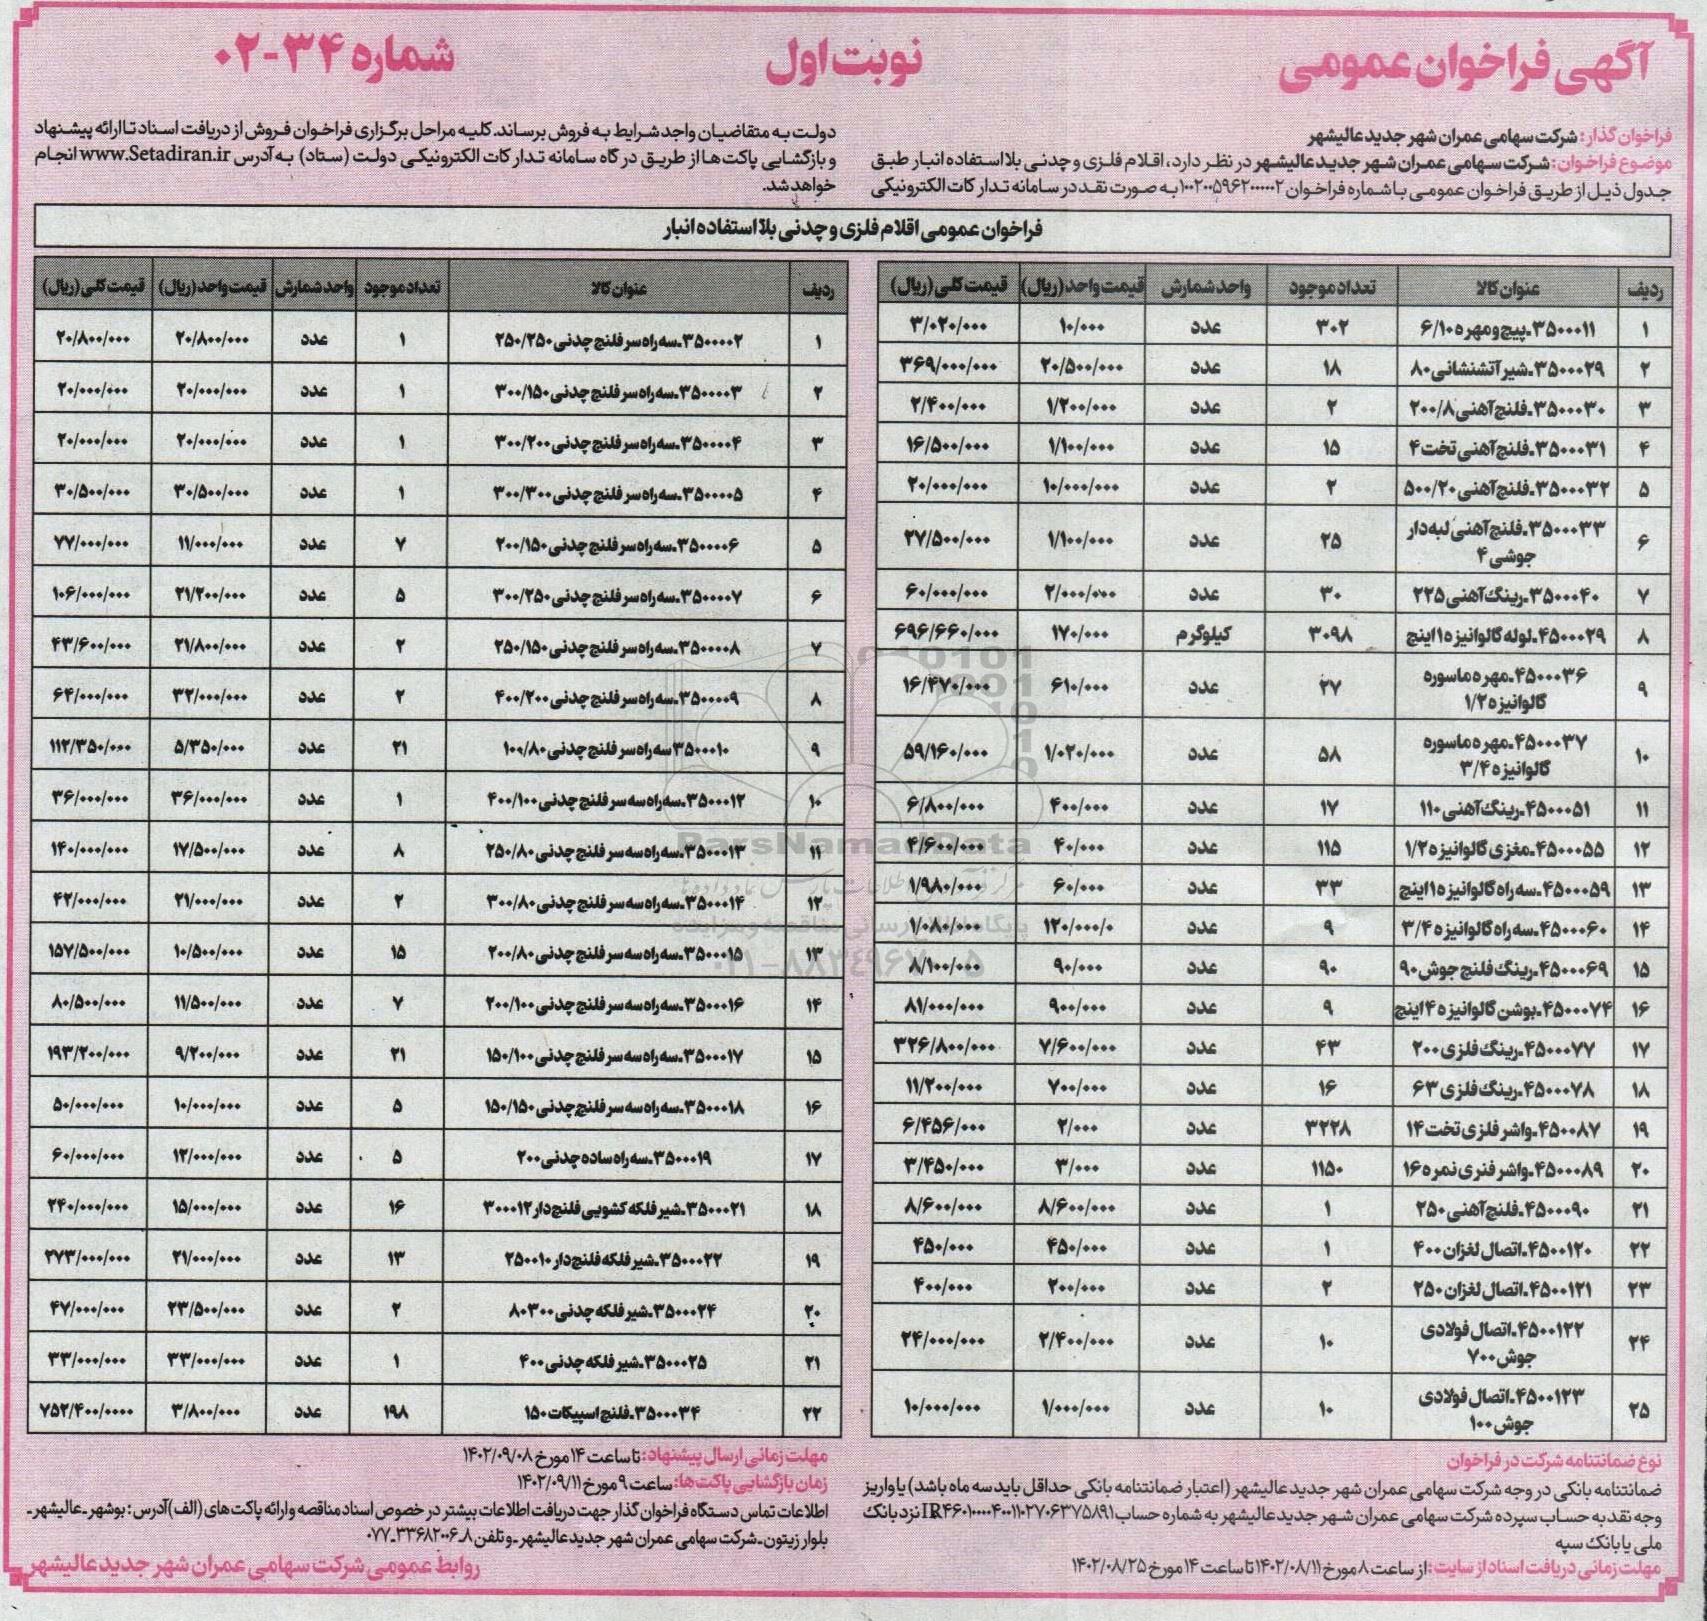 آگهی فراخوان عمومی
نوبت اول
شماره ۳۴-۰۲
فراخوان گذار: شرکت سهامی عمران شهر جدید عالیشهر
موضوع فراخوان: شرکت سهامی عمران شهر جدید عالیشهر در نظر دارد، اقلام فلزی و چدنی بلااستفاده انبار طبق
جدول ذیل از طریق فراخوان عمومی با شماره فراخوان ۱۰۰۲۰۰۵۹۶۲۰۰۰۰۰۲ به صورت نقد در سامانه تدارکات الکترونیکی
دولت به متقاضیان واجد شرایط به فروش برساند. کلیه مراحل برگزاری فراخوان فروش از دریافت اسناد تا ارائه پیشنهاد
و بازگشایی پاکت‌ها از طریق درگاه سامانه تدارکات الکترونیکی دولت (ستاد) به آدرس www.Setadiran.ir انجام
خواهد شد.
فراخوان عمومی اقلام فلزی و چدنی بلا استفاده انبار
ردیف عنوان کالا تعداد موجود واحد شمارش قیمت واحد (ریال) قیمت کلی (ریال)
۱ ۳۵۰۰۰۱۱-پیچ و مهره ۶/۱۰ ۳۰۲ عدد ۱۰/۰۰۰ ۳/۰۲۰/۰۰۰
۲ ۳۵۰۰۰۲۹-شیر آتشنشانی ۸۰ ۱۸ عدد ۲۰/۵۰۰/۰۰۰ ۳۶۹/۰۰۰/۰۰۰
۳ ۳۵۰۰۰۳۰-فلنج آهنی ۲۰۰/۸ ۲ عدد ۱/۲۰۰/۰۰۰ ۲/۴۰۰/۰۰۰
۴ ۳۵۰۰۰۳۱-فلنج آهنی تخت ۴ ۱۵ عدد ۱/۱۰۰/۰۰۰ ۱۶/۵۰۰/۰۰۰
۵ ۳۵۰۰۰۳۲-فلنج آهنی ۵۰۰/۲۰ ۲ عدد ۱۰/۰۰۰/۰۰۰ ۲۰/۰۰۰/۰۰۰
۶ ۳۵۰۰۰۳۳-فلنج آهنی لبه‌دار
جوشی ۴ ۲۵ عدد ۱/۱۰۰/۰۰۰ ۲۷/۵۰۰/۰۰۰
۷ ۳۵۰۰۰۴۰-رینگ آهنی ۲۲۵ ۳۰ عدد ۲/۰۰۰/۰۰۰ ۶۰/۰۰۰/۰۰۰
۸ ۴۵۰۰۰۲۹-لوله گالوانیزه ۱ اینچ ۳۰۹۸ کیلوگرم ۱۷۰/۰۰۰ ۶۹۶/۶۶۰/۰۰۰
۹ ۴۵۰۰۰۳۶-مهره ماسوره
گالوانیزه ۱/۲ ۲۷ عدد ۶۱۰/۰۰۰ ۱۶/۴۷۰/۰۰۰
۱۰ ۴۵۰۰۰۳۷-مهره ماسوره
گالوانیزه ۳/۴ ۵۸ عدد ۱/۰۲۰/۰۰۰ ۵۹/۱۶۰/۰۰۰
۱۱ ۴۵۰۰۰۵۱-رینگ آهنی ۱۱۰ ۱۷ عدد ۴۰۰/۰۰۰ ۶/۸۰۰/۰۰۰
۱۲ ۴۵۰۰۰۵۵-مغزی گالوانیزه ۱/۲ ۱۱۵ عدد ۴۰/۰۰۰ ۴/۶۰۰/۰۰۰
۱۳ ۴۵۰۰۰۵۹-سه راه گالوانیزه ۱ اینچ ۳۳ عدد ۶۰/۰۰۰ ۱/۹۸۰/۰۰۰
۱۴ ۴۵۰۰۰۶۰-سه راه گالوانیزه ۳/۴ ۹ عدد ۱۲۰/۰۰۰/۰ ۱/۰۸۰/۰۰۰
۱۵ ۴۵۰۰۰۶۹-رینگ فلنج جوش ۹۰ ۹۰ عدد ۹۰/۰۰۰ ۸/۱۰۰/۰۰۰
۱۶ ۴۵۰۰۰۷۴-بوشن گالوانیزه ۴ اینچ ۹ عدد ۹۰۰/۰۰۰ ۸۱/۰۰۰/۰۰۰
۱۷ ۴۵۰۰۰۷۷-رینگ فلزی ۲۰۰ ۴۳ عدد ۷/۶۰۰/۰۰۰ ۳۲۶/۸۰۰/۰۰۰
۱۸ ۴۵۰۰۰۷۸-رینگ فلزی ۶۳ ۱۶ عدد ۷۰۰/۰۰۰ ۱۱/۲۰۰/۰۰۰
۱۹ ۴۵۰۰۰۸۷-واشر فلزی تخت ۱۴ ۳۲۲۸ عدد ۲/۰۰۰ ۶/۴۵۶/۰۰۰
۲۰ ۴۵۰۰۰۸۹-واشر فنری نمره ۱۶ ۱۱۵۰ عدد ۳/۰۰۰ ۳/۴۵۰/۰۰۰
۲۱ ۴۵۰۰۰۹۰-فلنج آهنی ۲۵۰ ۱ عدد ۸/۶۰۰/۰۰۰ ۸/۶۰۰/۰۰۰
۲۲ ۴۵۰۰۱۲۰-اتصال لغزان ۴۰۰ ۱ عدد ۴۵۰/۰۰۰ ۴۵۰/۰۰۰
۲۳ ۴۵۰۰۱۲۱-اتصال لغزان ۲۵۰ ۲ عدد ۲۰۰/۰۰۰ ۴۰۰/۰۰۰
۲۴ ۴۵۰۰۱۲۲-اتصال فولادی
جوش ۷۰۰ ۱۰ عدد ۲/۴۰۰/۰۰۰ ۲۴/۰۰۰/۰۰۰
۲۵ ۴۵۰۰۱۲۳-اتصال فولادی
جوش ۱۰۰ ۱۰ عدد ۱/۰۰۰/۰۰۰ ۱۰/۰۰۰/۰۰۰
ردیف عنوان کالا تعداد موجود واحد شمارش قیمت واحد (ریال) قیمت کلی (ریال)
۱ ۳۵۰۰۰۰۲-سه راه سر فلنج چدنی ۲۵۰/۲۵۰ ۱ عدد ۲۰/۸۰۰/۰۰۰ ۲۰/۸۰۰/۰۰۰
۲ ۳۵۰۰۰۰۳-سه راه سر فلنج چدنی ۳۰۰/۱۵۰ ۱ عدد ۲۰/۰۰۰/۰۰۰ ۲۰/۰۰۰/۰۰۰
۳ ۳۵۰۰۰۰۴-سه راه سر فلنج چدنی ۳۰۰/۲۰۰ ۱ عدد ۲۰/۰۰۰/۰۰۰ ۲۰/۰۰۰/۰۰۰
۴ ۳۵۰۰۰۰۵-سه راه سر فلنج چدنی ۳۰۰/۳۰۰ ۱ عدد ۳۰/۵۰۰/۰۰۰ ۳۰/۵۰۰/۰۰۰
۵ ۳۵۰۰۰۰۶-سه راه سر فلنج چدنی ۲۰۰/۱۵۰ ۷ عدد ۱۱/۰۰۰/۰۰۰ ۷۷/۰۰۰/۰۰۰
۶ ۳۵۰۰۰۰۷-سه راه سر فلنج چدنی ۳۰۰/۲۵۰ ۵ عدد ۲۱/۲۰۰/۰۰۰ ۱۰۶/۰۰۰/۰۰۰
۷ ۳۵۰۰۰۰۸-سه راه سر فلنج چدنی ۲۵۰/۱۵۰ ۲ عدد ۲۱/۸۰۰/۰۰۰ ۴۳/۶۰۰/۰۰۰
۸ ۳۵۰۰۰۰۹-سه راه سر فلنج چدنی ۴۰۰/۲۰۰ ۲ عدد ۳۲/۰۰۰/۰۰۰ ۶۴/۰۰۰/۰۰۰
۹ ۳۵۰۰۰۱۰ سه راه سر فلنج چدنی ۱۰۰/۸۰ ۲۱ عدد ۵/۳۵۰/۰۰۰ ۱۱۲/۳۵۰/۰۰۰
۱۰ ۳۵۰۰۰۱۲-سه راه سه سر فلنج چدنی ۴۰۰/۱۰۰ ۱ عدد ۳۶/۰۰۰/۰۰۰ ۳۶/۰۰۰/۰۰۰
۱۱ ۳۵۰۰۰۱۳-سه راه سه سر فلنج چدنی ۲۵۰/۸۰ ۸ عدد ۱۷/۵۰۰/۰۰۰ ۱۴۰/۰۰۰/۰۰۰
۱۲ ۳۵۰۰۰۱۴-سه راه سه سر فلنج چدنی ۳۰۰/۸۰ ۲ عدد ۲۱/۰۰۰/۰۰۰ ۴۲/۰۰۰/۰۰۰
۱۳ ۳۵۰۰۰۱۵-سه راه سه سر فلنج چدنی ۲۰۰/۸۰ ۱۵ عدد ۱۰/۵۰۰/۰۰۰ ۱۵۷/۵۰۰/۰۰۰
۱۴ ۳۵۰۰۰۱۶-سه راه سه سر فلنج چدنی ۲۰۰/۱۰۰ ۷ عدد ۱۱/۵۰۰/۰۰۰ ۸۰/۵۰۰/۰۰۰
۱۵ ۳۵۰۰۰۱۷-سه راه سه سر فلنج چدنی ۱۵۰/۱۰۰ ۲۱ عدد ۹/۲۰۰/۰۰۰ ۱۹۳/۲۰۰/۰۰۰
۱۶ ۳۵۰۰۰۱۸-سه راه سه سر فلنج چدنی ۱۵۰/۱۵۰ ۵ عدد ۱۰/۰۰۰/۰۰۰ ۵۰/۰۰۰/۰۰۰
۱۷ ۳۵۰۰۰۱۹-سه راه ساده چدنی ۲۰۰ ۵ عدد ۱۲/۰۰۰/۰۰۰ ۶۰/۰۰۰/۰۰۰
۱۸ ۳۵۰۰۰۲۱-شیر فلکه کشویی فلنج‌دار ۳۰۰۰۱۲ ۱۶ عدد ۱۵/۰۰۰/۰۰۰ ۲۴۰/۰۰۰/۰۰۰
۱۹ ۳۵۰۰۰۲۲-شیر فلکه فلنج‌دار ۲۵۰۰۱۰ ۱۳ عدد ۲۱/۰۰۰/۰۰۰ ۲۷۳/۰۰۰/۰۰۰
۲۰ ۳۵۰۰۰۲۴-شیر فلکه چدنی ۸۰۳۰۰ ۲ عدد ۲۳/۵۰۰/۰۰۰ ۴۷/۰۰۰/۰۰۰
۲۱ ۳۵۰۰۰۲۵-شیر فلکه چدنی ۴۰۰ ۱ عدد ۳۳/۰۰۰/۰۰۰ ۳۳/۰۰۰/۰۰۰
۲۲ ۳۵۰۰۰۳۴-فلنج اسپیکات ۱۵۰ ۱۹۸ عدد ۳/۸۰۰/۰۰۰ ۷۵۲/۴۰۰/۰۰۰۰
نوع ضمانتنامه شرکت در فراخوان
ضمانتنامه بانکی در وجه شرکت سهامی عمران شهر جدید عالیشهر (اعتبار ضمانتنامه بانکی حداقل باید سه ماه باشد) یا واریز
وجه نقد به حساب سپرده شرکت سهامی عمران شهر جدید عالیشهر به شماره حساب نزد بانک
ملی یا بانک سپه
مهلت زمانی دریافت اسناد از سایت: از ساعت ۸ مورخ ۱۴۰۲/۰۸/۱۱ تا ساعت ۱۴ مورخ ۱۴۰۲/۰۸/۲۵
مهلت زمانی ارسال پیشنهاد: تا ساعت ۱۴ مورخ ۱۴۰۲/۰۹/۰۸
زمان بازگشایی پاکت‌ها: ساعت ۹ مورخ ۱۴۰۲/۰۹/۱۱
اطلاعات تماس دستگاه فراخوان گذار جهت دریافت اطلاعات بیشتر در خصوص اسناد مناقصه و ارائه پاکت های (الف) آدرس: بوشهر-عالیشهر-
بلوار زیتون-شرکت سهامی عمران شهر جدید عالیشهر-و تلفن ۸-۳۳۶۸۲۰۰۶-۰۷۷
روابط عمومی شرکت سهامی عمران شهر جدید عالیشهر
ParsNamadData
پایگاه اطلاع رسانی مناقصه و مزایده